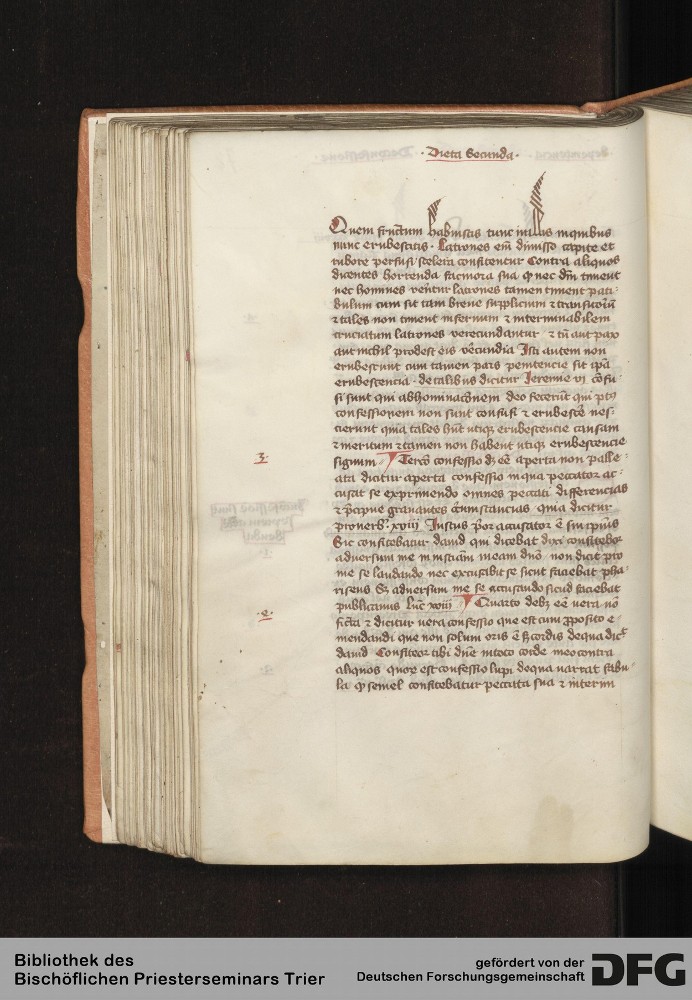 · Dieta Secunda ·
Quem fructum habuistis tunc in illis in quibus
nunc erubescitis · Latrones em̄ dimisso capite et
rubore perfusi scelera confitentur Contra aliquos
dicentes horrenda facinora sua qͥ nec dm̄ timent
nec homines rentur latrones tamen timent pati-
bulum cum sit tam breue supplicium ⁊ transitoriū
⁊ tales non timent infernum ⁊ interminabilem
cruciatum latrones verecundantur ⁊ tn̄ aut pax
aut nichil prodest eis vēcundia Isti autem non
erubescunt cum tamen pars penitencie sit ipā
erubescencia · de talibus dicitur Jeremie vj cōfu-
si sunt qui abhominac̄onem deo fecerūt qui ptꝫ
confessionem non sunt confusi ⁊ erubescē nes-
cierunt quia tales hn̄t utiqꝫ erubescencie causam
⁊ meritum ⁊ tamen non habent utiqꝫ erubescencie
3.
signum Tercō confessio dꝫ eē aperta non palle-
ata dicitur aperta confessio in qua peccator ac-
cusat se exprimendo omnes peccati differencias
⁊ p̄cipue grauantes circumstancias quia dicitur
prouerbꝫ xviij Justus p̄or accusator ē sui ipsius
Sic confitebatur dauid qui dicebat dixi confitebor
aduersum me iniusticiā meam dnō non dicit pro
me se laudando nec excusabit se sicut faciebat pha-
riseus Sꝫ aduersum me se accusando sicud faciebat
publicanus Luc̄ xviij Quarto debꝫ eē vera nō
·e·
ficta ⁊ dicitur vera confessio que est cum ꝓposito e-
mendandi que non solum oris ē sꝫ cordis de qua dic̄t
dauid Confiteor tibi dn̄e in toto corde meo contra
aliquos quoꝝ est confessio lupi de qua narrat fabu-
la qꝫ semel confitebatur peccata sua ⁊ interim
Bibliothek des
Bischöflichen Priesterseminars Trier
gefördert von der
Deutschen Forschungsgemeinschaft
DFG